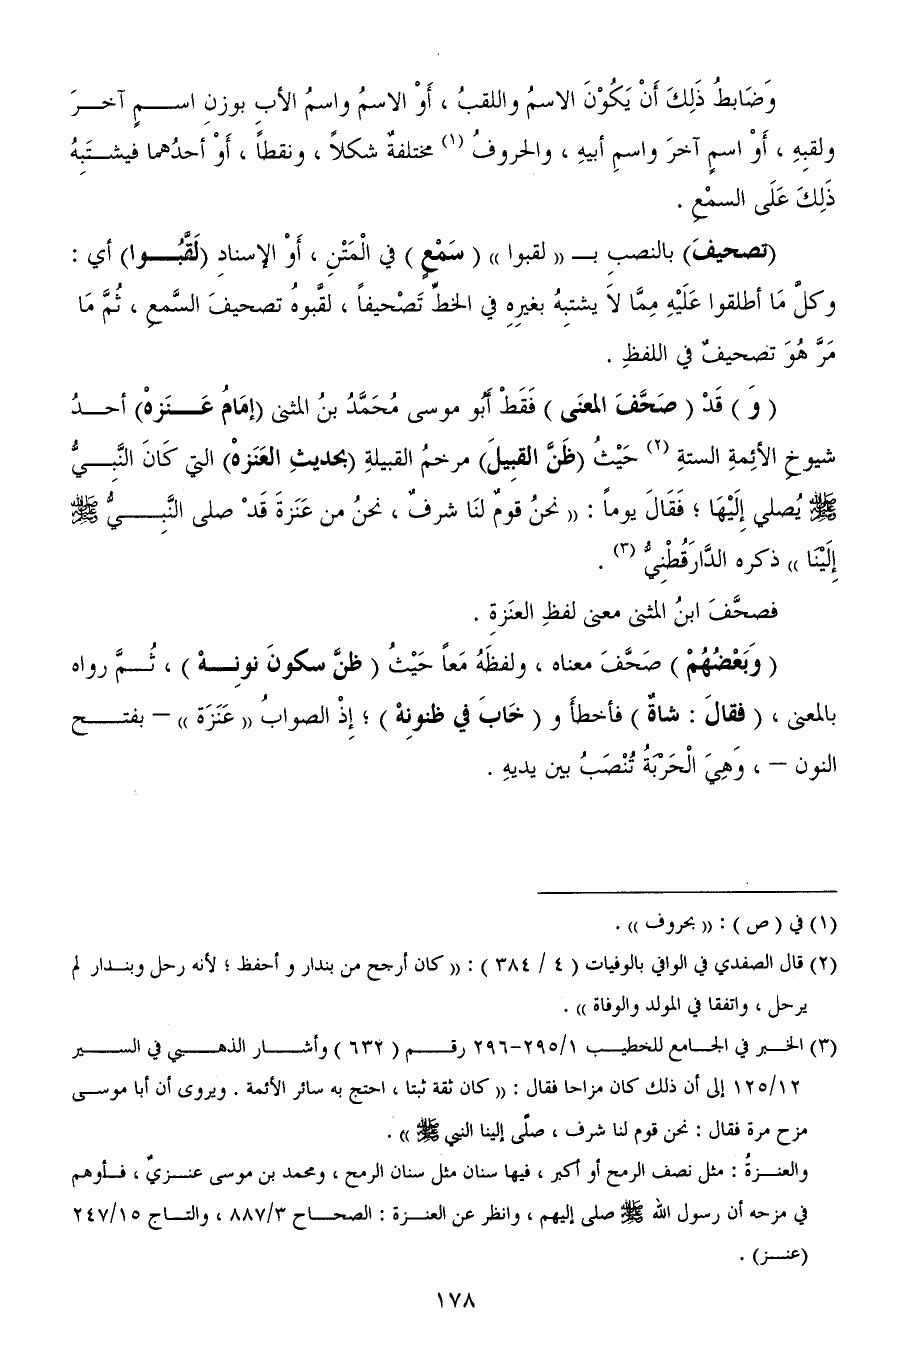 وَضَابطُ ذَلِكَ أَنْ يَكُوْنَ الاسمُ واللقبُ ، أَوْ الاسمُ واسمُ الأبِ بوزنِ اســـمٍ آخــرَ
ولقبِهِ ، أَوْ اسمٍ آخرَ واسمِ أبيهِ ، والحروفُ (١) مختلفةٌ شكلاً ، ونقطاً ، أَوْ أحدُهما فيشــتَبِهُ
ذَلِكَ عَلَى السمْعِ .
(تصحيفَ) بالنصبِ بــ « لقبوا » ( سَمْعٍ ) في الْمَتْنِ ، أَوْ الإسنادِ (لَقَّبُـــوا) أي :
وكلَّ مَا أطلقوا عَلَيْهِ مِمَّا لاَ يشتبِهُ بغيرِهِ في الخطِّ تَصْحيفاً ، لقَّبوهُ تصحيفَ السَّمعِ ، ثُمَّ مَا
مَرَّ هُوَ تصحيفٌ في اللفظِ .
( وَ ) قَدْ ( صَحَّفَ المعْنَى ) فَقَطْ أَبُو موسى مُحَمَّدُ بنُ المثنى (إمَامُ عَــنَزهْ) أحــدُ
شيوخِ الأئِمةِ الستةِ (٢) حَيْثُ (ظَنَّ القبيلَ) مرخمُ القبيلةِ (بحديثِ العَنَزهْ) التي كَانَ النَّبِــيُّ
ﷺ يُصلي إِلَيْهَا ؛ فَقَالَ يوماً : « نحنُ قومٌ لنَا شرفٌ ، نحنُ من عَنَزةَ قَدْ صلى النَّبِــــيُّ ﷺ
إِلَيْنَا » ذكره الدَّارَقُطْنِيُّ (٣) .
فصحَّفَ ابنُ المثنى معنى لفظِ العنَزةِ .
( وَبَعْضُهُمْ ) صَحَّفَ معناه ، ولفظَهُ مَعاً حَيْثُ ( ظنَّ سكونَ نونِــهْ ) ، ثُــمَّ رواه
بالمعنى ، ( فقالَ : شاةٌ ) فأخطأَ و ( خَابَ في ظنونِهْ ) ؛ إِذْ الصوابُ « عَنَزَة » – بفتـــح
النون – ، وَهِيَ الْحَرْبَةُ تُنْصَبُ بين يديهِ .
(١) في ( ص ) : « بحروف » .
(٢) قال الصفدي في الوافي بالوفيات ( ٤ / ٣٨٤ ) : « كان أرجح من بندار و أحفظ ؛ لأنه رحل وبنــدار لم
يرحل ، واتفقا في المولد والوفاة » .
(٣) الخــبر في الجــامع للخطيــب ٢٩٥/١–٢٩٦ رقــم ( ٦٣٢ ) وأشــار الذهــبي في الســير
١٢٥/١٢ إلى أن ذلك كان مزاحا فقال : « كان ثقة ثبتا ، احتج به سائر الأئمة . ويروى أن أبا موســى
مزح مرة فقال : نحن قوم لنا شرف ، صلّى إلينا النبي ﷺ » .
والعنــزةُ : مثل نصف الرمح أو أكبر ، فيها سنان مثل سنان الرمح ، ومحمد بن موسى عنــزيٌ ، فــأوهم
في مزحه أن رسول الله ﷺ صلى إليهم ، وانظر عن العنــزة : الصحــاح ٨٨٧/٣ ، والتــاج ٢٤٧/١٥
(عنــز) .
١٧٨